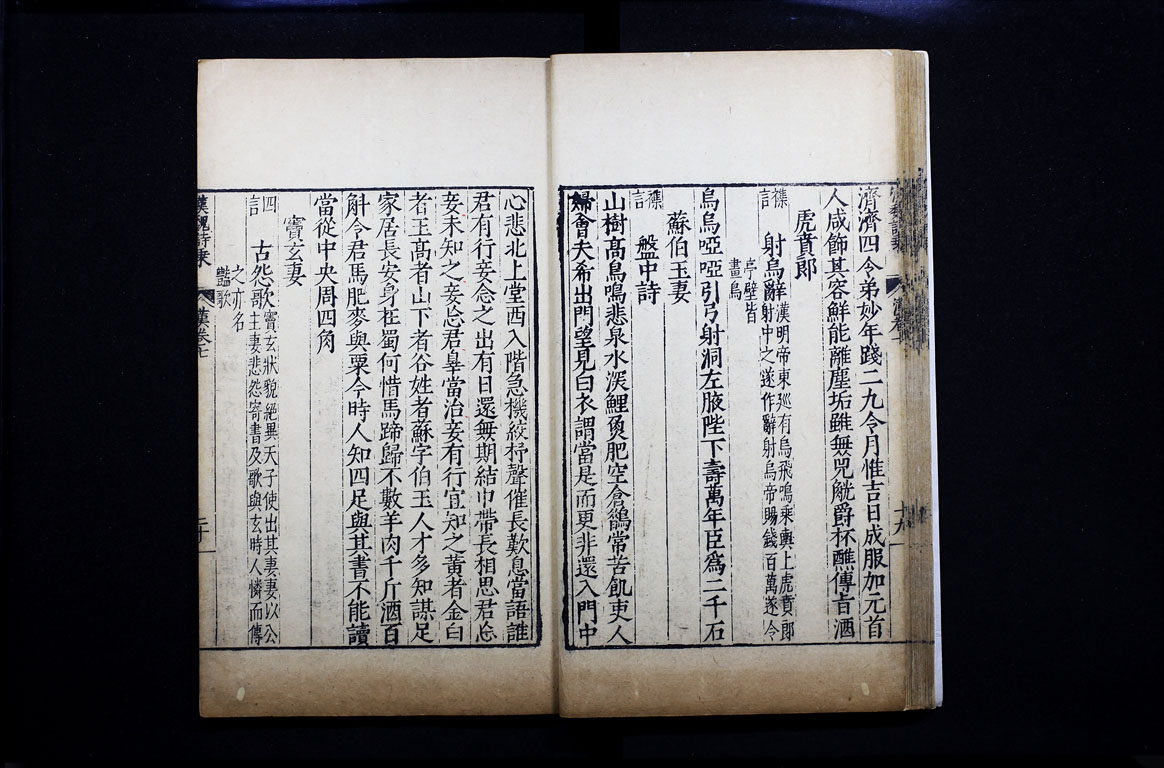 濟濟四令弟妙年踐二九令月惟吉日成服加元首
人咸飾其容鮮能離塵垢雖無兕觥爵杯醮傳旨酒
虎賁郎
襍言
射烏辭
漢明帝東廵有烏飛鳴乘輿上虎賁郎
射中之遂作辭射烏帝賜錢百萬遂令
亭壁皆
畫烏
烏烏啞啞引弓射洞左腋陛下壽萬年臣爲二千石
蘇伯玉妻
襍言
盤中詩
山樹高鳥鳴悲泉水深鯉魚肥空倉鵲常苦飢吏人
婦會夫希出門望見白衣謂當是而更非還入門中
心悲北上堂西入階急機絞杼聲催長歎息當語誰
君有行妾念之出有日還無期結巾帶長相思君忘
妾未知之妾忘君辠當治妾有行宜知之黃者金白
者玉高者山下者谷姓者蘇字伯玉人才多知謀足
家居長安身在蜀何惜馬蹄歸不數羊肉千斤酒百
斛令君馬肥麥與粟今時人知四足與其書不能讀
當從中央周四角
竇玄妻
四言
古怨歌
竇玄狀貌絕異天子使出其妻妻以公
主妻悲怨寄書及歌與玄時人憐而傳
之亦名
豔歌
漢魏詩乘
漢卷七
二十